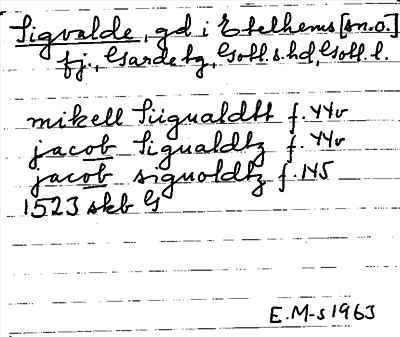 Sigvalde, gd i Etelhems [sn.o.]
fj., Garde tg, Gotl.s.hd, Gotl.l.
mikell Siigualdtt f. 44v
jacob Sigualdtz f. 44v
jacob siguoldtz f. 145
1523 skb G
E.M-s 1963